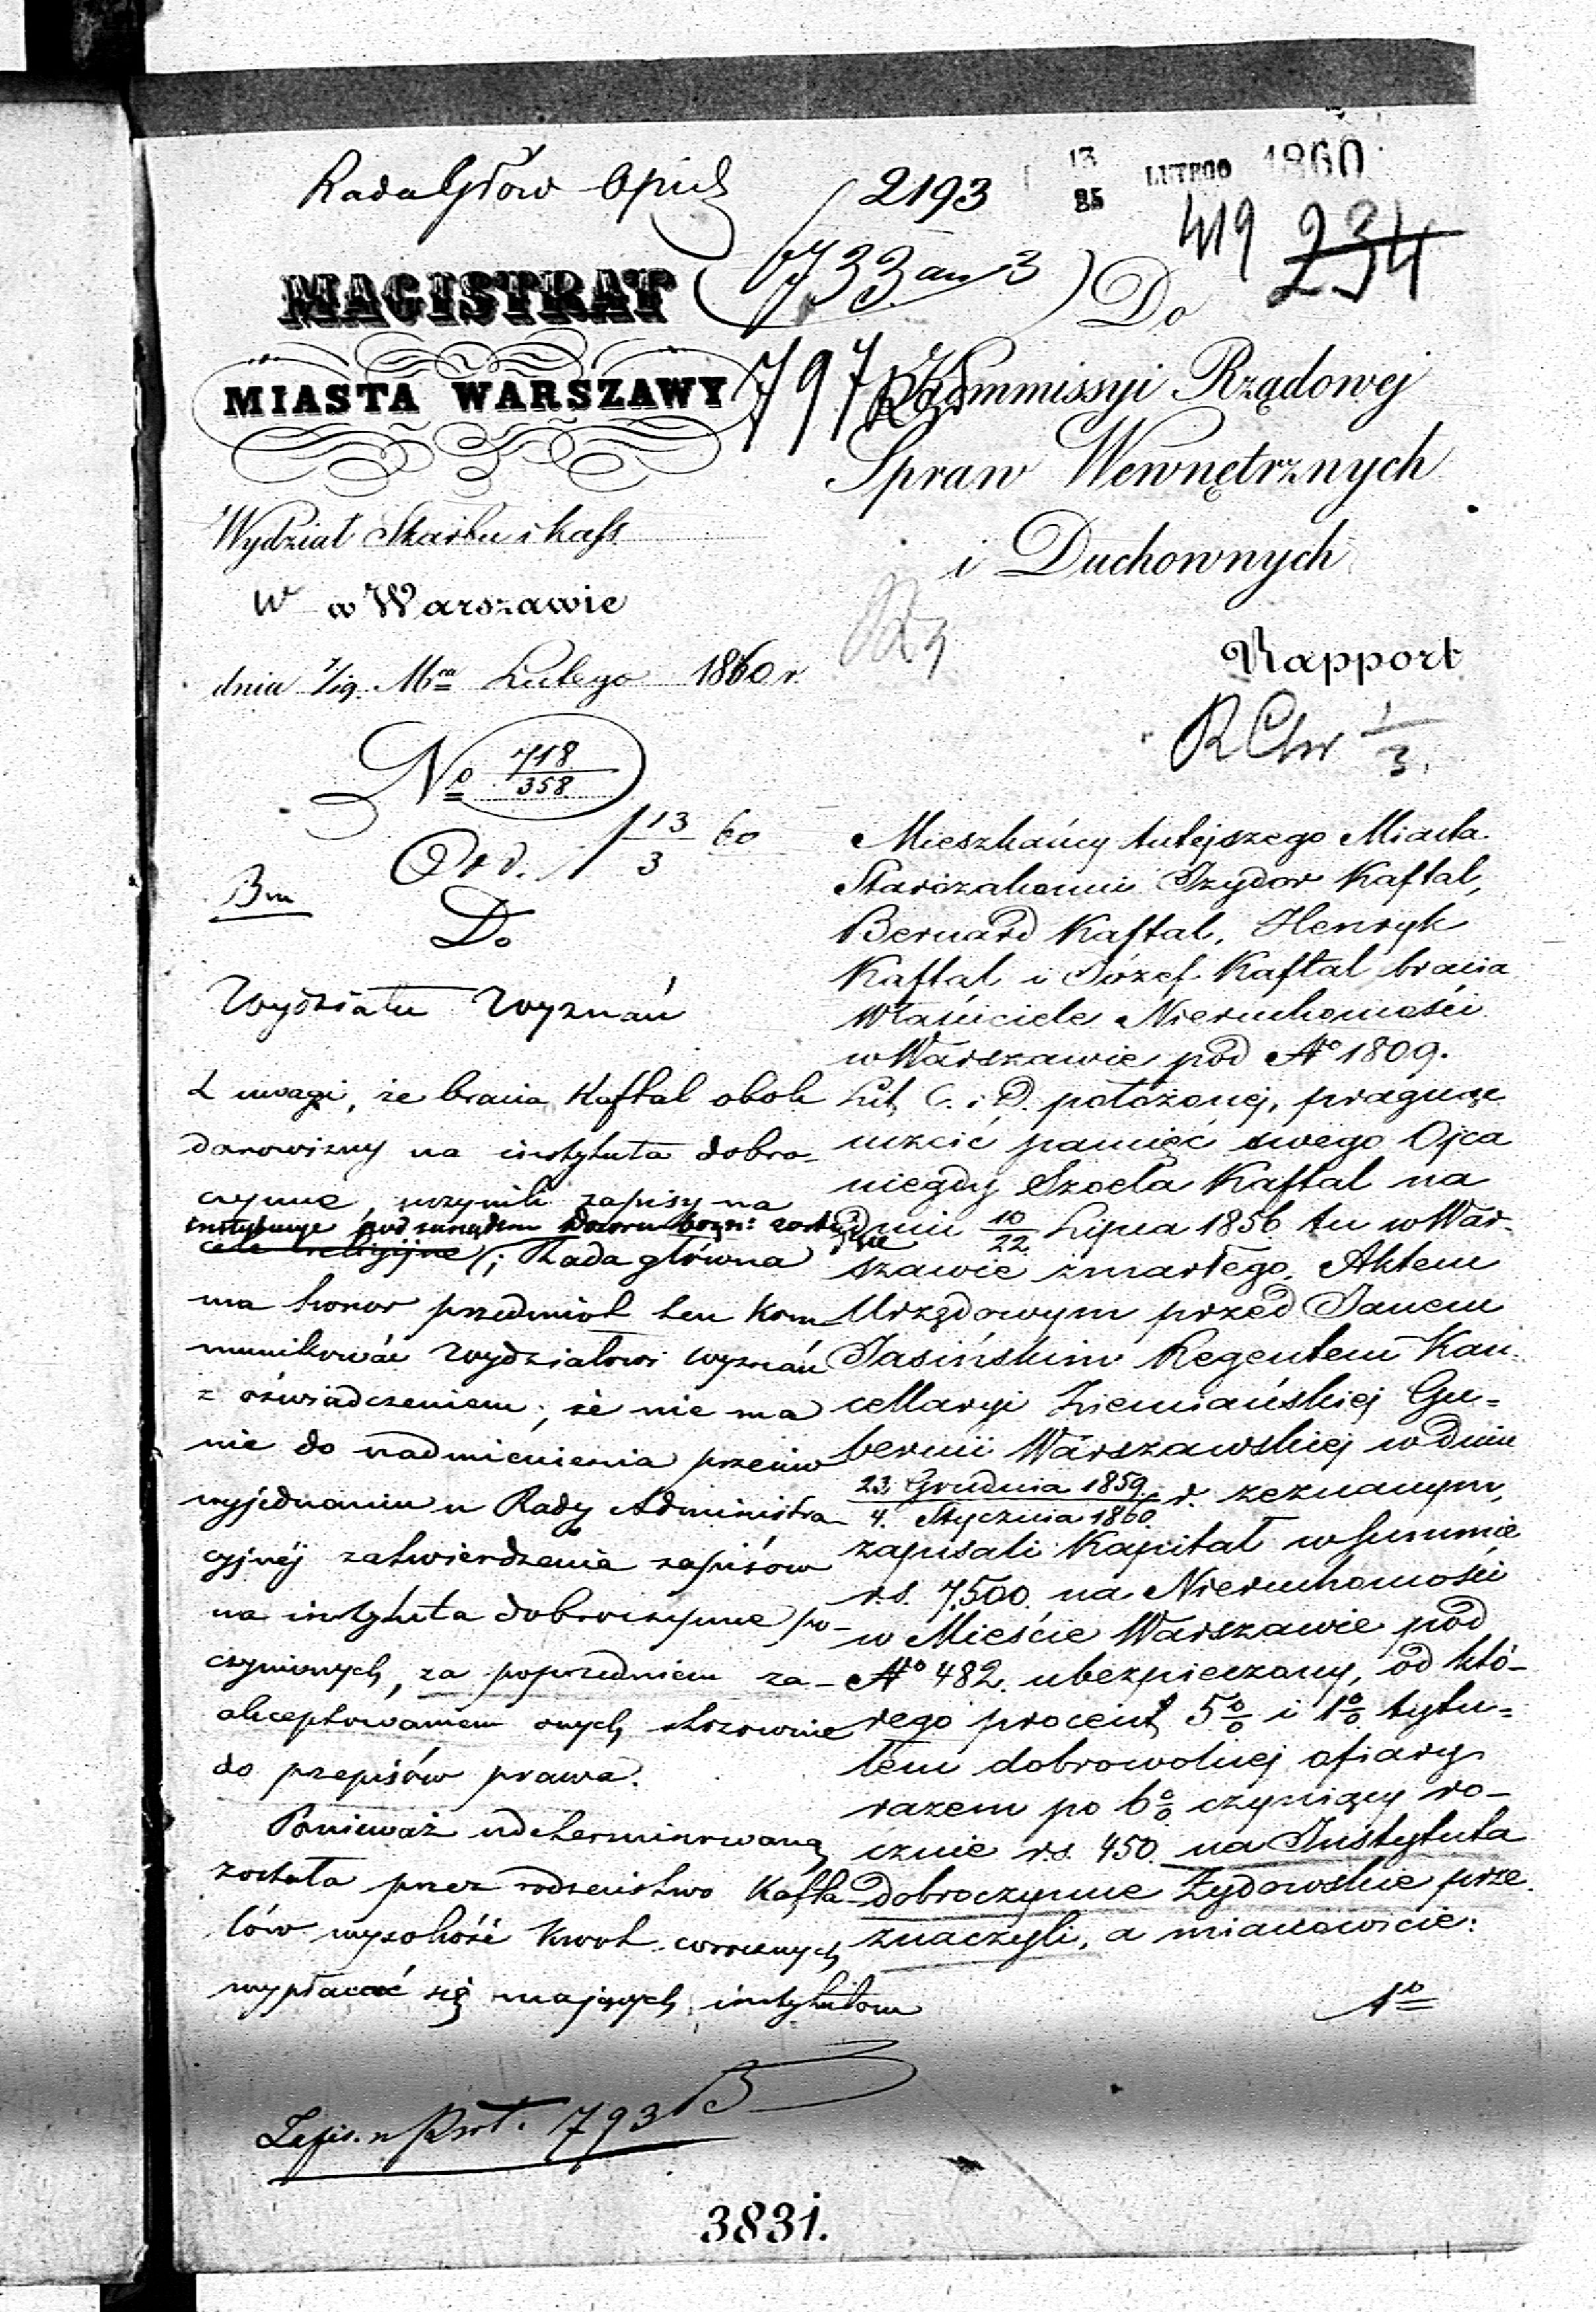 Rada Głów Opiek
2193
13
25 LUTEGO 1860
419 234
733
Do
MAGISTRAT
MIASTA WARSZAWY
797
Kommissyi Rządowej
Spraw Wewnętrznych
i Duchownych
Wydział Skarbu i Kass
W w Warszawie
dnia 7/19 Mca Lutego 1860 r.
Rapport
No 718/358
1/3
13/3 60
Do
Wydziału Wyznań
Z uwagi, że bracia Kaftal obok
darowizny na instytuta dobro-
czynne, uczynili zapisy na
instytucye pod zarządem Dozoru bożn: zostające
cele religijne; Rada główna
ma honor przedmiot ten kom
munikować Wydziałowi Wyznań
z oświadczeniem, że nie ma
nic do nadmienienia przeciw
wyjednaniu u Rady Administra-
cyjnéj zatwierdzenia zapisów
na instytuta dobroczynne po-
czynionych, za poprzedniem za-
akceptowaniem onych stosownie
do przepisów prawa.
Ponieważ udeterminowaną
została przez rodzeństwo Kafta-
lów wysokość kwot corocznych
wypłacać się mających instytutom
Mieszkańcy tutejszego Miasta
Starozakonni Izydor Kaftal,
Bernard Kaftal, Henryk
Kaftal i Józef Kaftal bracia
Właściciele Nieruchomości
w Warszawie pod No 1809.
Lit. C. i D. położonej, pragnąc
uczcić pamięć swego Ojca
niegdy Szoela Kaftal na
dniu 10/22 Lipca 1856 tu w War-
szawie zmarłego, Aktem
Urzędowym przed Janem
Jasińskim Regentem Kan-
cellaryi Ziemiańskiej Gu=
bernii Warszawskiej w dniu
23 Grudnia 1859/4. Stycznia 1860 r. zeznanym,
zapisali Kapitał w summie
r.s. 7,500. na Nieruchomości
w Mieście Warszawie pod
No 482. ubezpieczony, od któ-
rego procent 5% i 1% tytu=
łem dobrowolnej ofiary
razem po 6% czyniący ro-
cznie r.s. 450. na Instytuta
dobroczynne Żydowskie prze-
znaczyli, a mianowicie:
1o
793
3831.